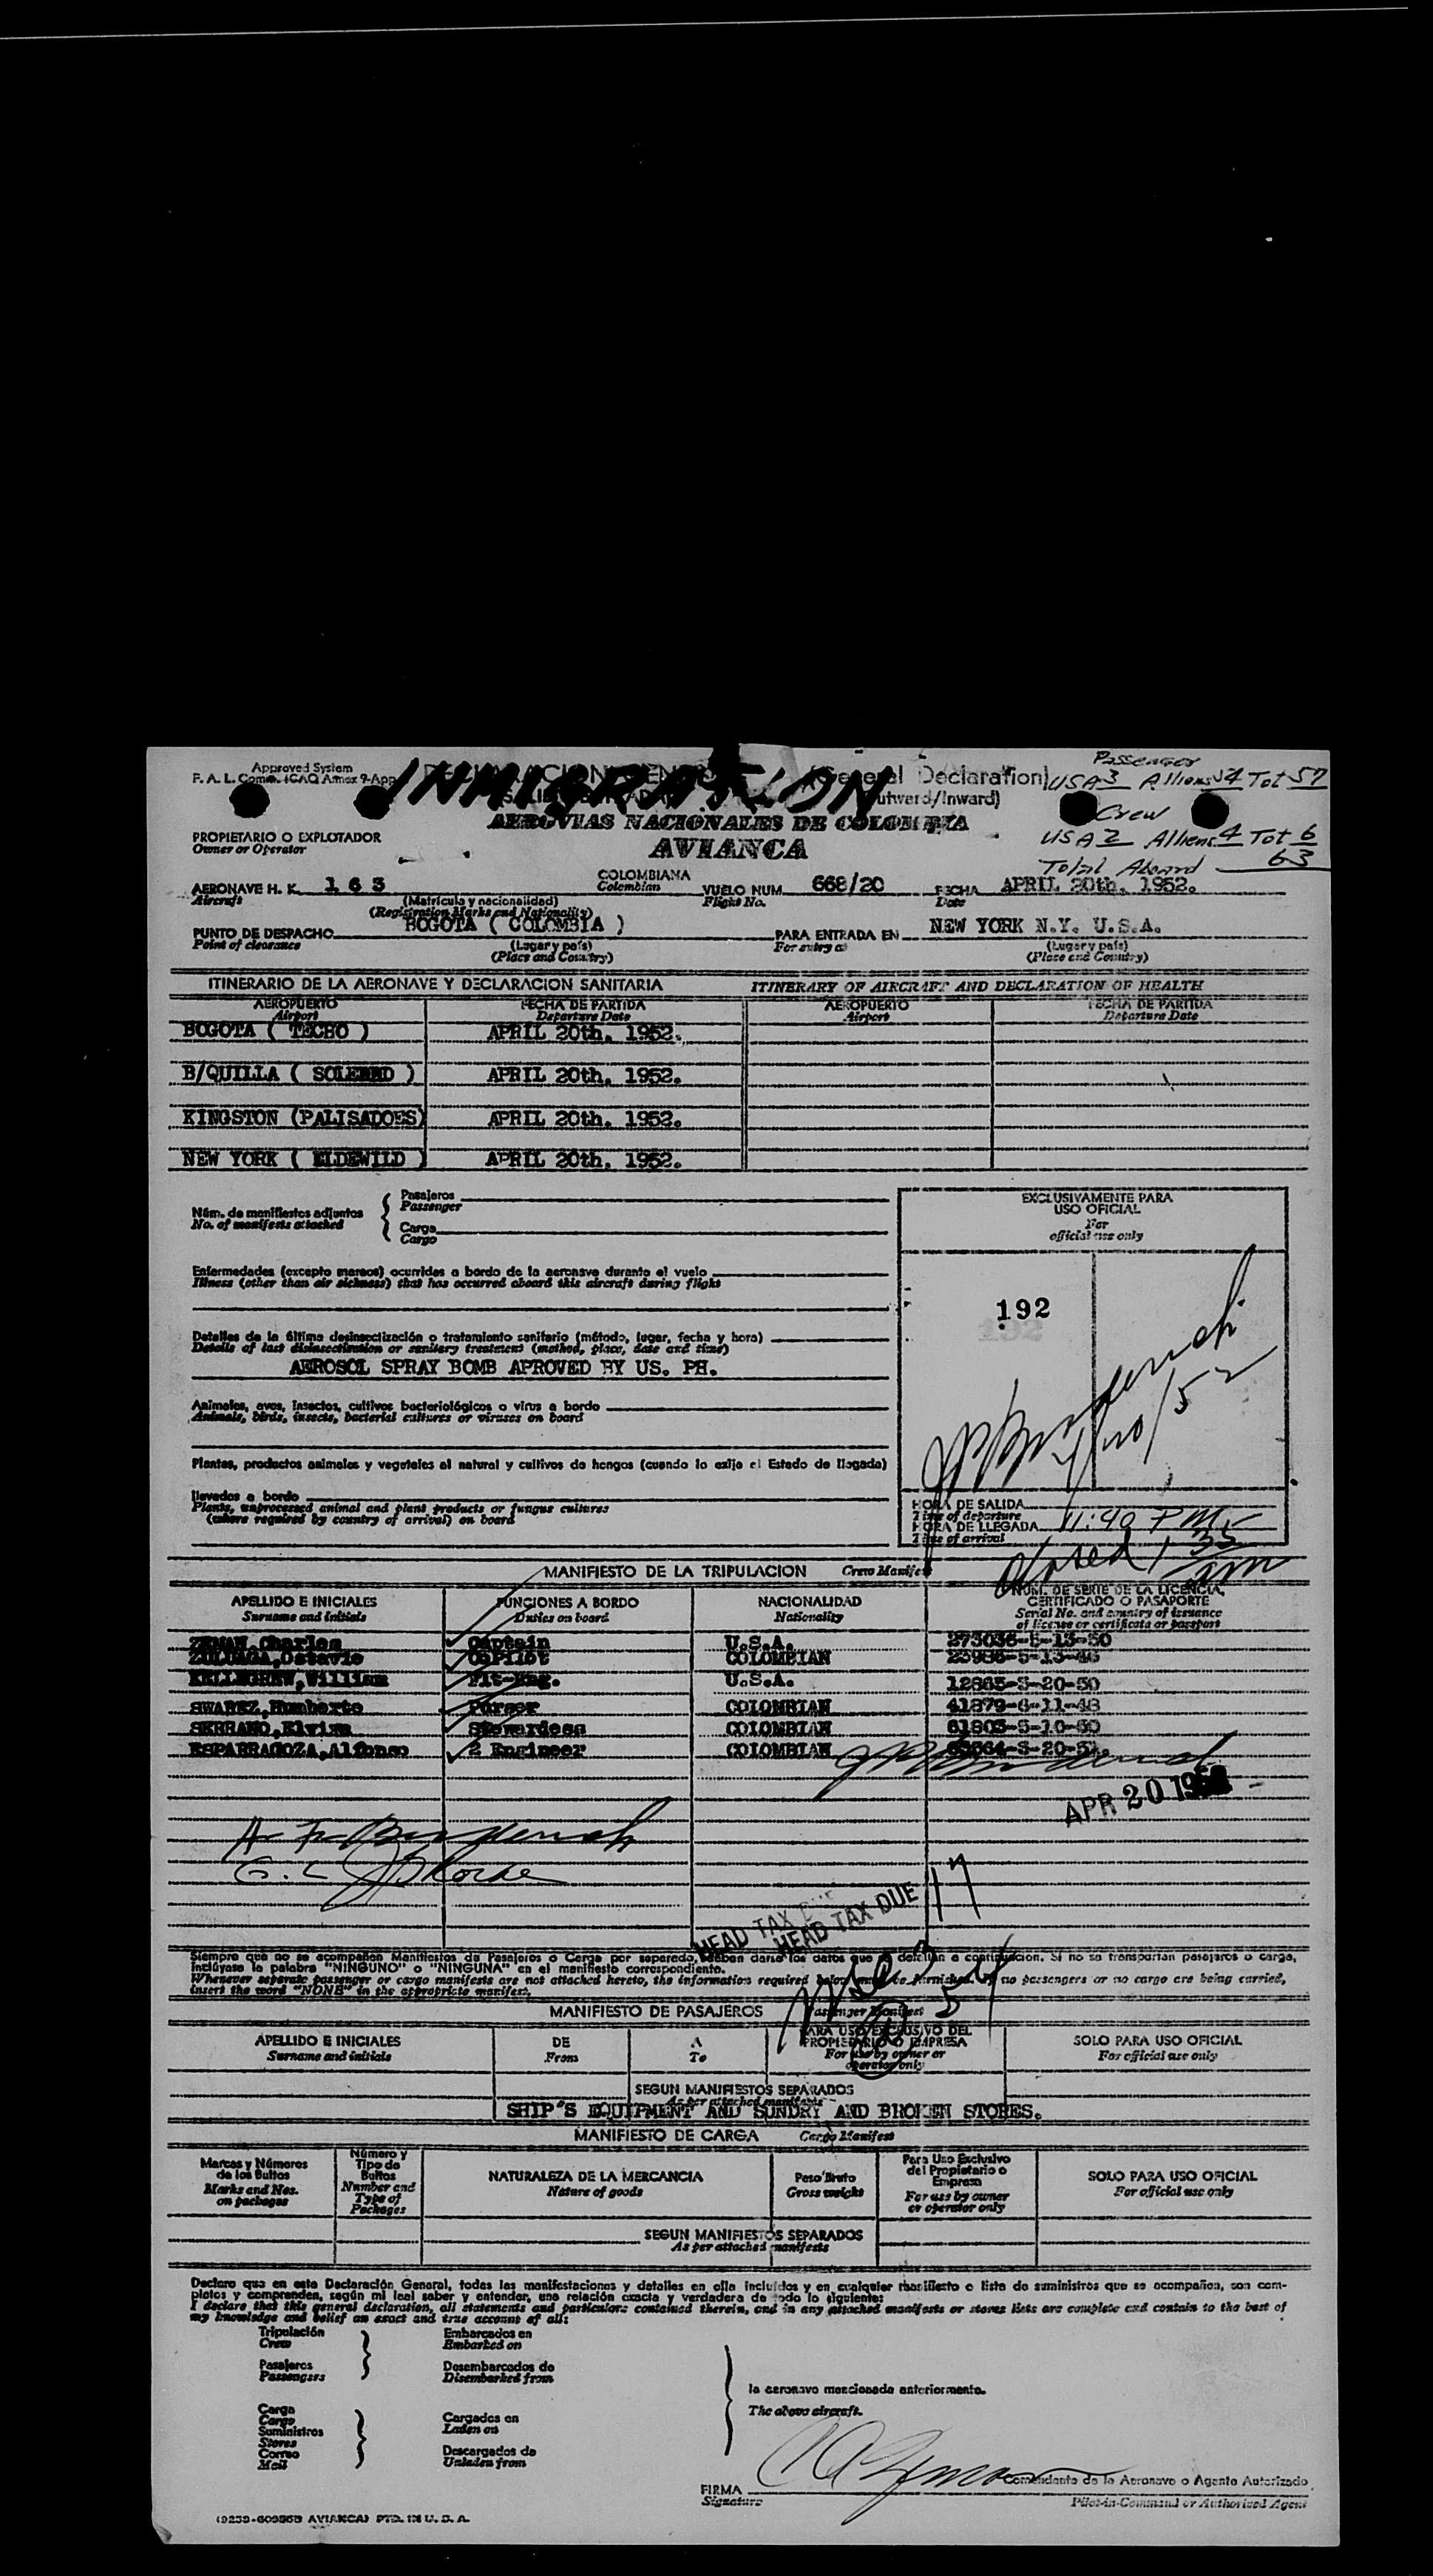 Approved System
F. A. L. Comm. ICAO Annex 9-App
INMIGRATION
(General Declaration)
Outward/Inward)
Passenger
USA 3 Aliens 54 Tot 57
Crew
USA 2 Aliens 4 Tot 6
Total Aboard 63
AEROVIAS NACIONALES DE COLOMBIA
AVIANCA
PROPIETARIO O EXPLOTADOR
Owner or Operator
AERONAVE H. K. 163 COLOMBIANA VUELO NUM. 668/20 FECHA APRIL 20th. 1952.
Aircraft Colombian Flight No. Date
(Matrícula y nacionalidad)
(Registration Marks and Nationality)
PUNTO DE DESPACHO BOGOTA ( COLOMBIA ) PARA ENTRADA EN NEW YORK N.Y. U.S.A.
Point of clearance (Lugar y país) For entry at (Lugar y país)
(Place and Country) (Place and Country)
ITINERARIO DE LA AERONAVE Y DECLARACION SANITARIA ITINERARY OF AIRCRAFT AND DECLARATION OF HEALTH
AEROPUERTO FECHA DE PARTIDA AEROPUERTO FECHA DE PARTIDA
Airport Departure Date Airport Departure Date
BOGOTA ( TECHO ) APRIL 20th. 1952.
B/QUILLA ( SOLEDAD ) APRIL 20th. 1952.
KINGSTON (PALISADOES) APRIL 20th. 1952.
NEW YORK ( ELDEWILD ) APRIL 20th. 1952.
Núm. de manifiestos adjuntos
No. of manifests attached
Pasajeros
Passenger
Carga
Cargo
Enfermedades (excepto mareos) ocurridas a bordo de la aeronave durante el vuelo
Illness (other than air sickness) that has occurred aboard this aircraft during flight
Detalles de la última desinsectización o tratamiento sanitario (método, lugar, fecha y hora)
Details of last disinsectization or sanitary treatment (method, place, date and time)
AEROSOL SPRAY BOMB APROVED BY US. PH.
Animales, aves, insectos, cultivos bacteriológicos o virus a bordo
Animals, birds, insects, bacterial cultures or viruses on board
Plantas, productos animales y vegetales al natural y cultivos de hongos (cuando lo exija el Estado de llegada)
llevados a bordo
Plants, unprocessed animal and plant products or fungus cultures
(where required by country of arrival) on board
EXCLUSIVAMENTE PARA
USO OFICIAL
For
official use only
192
4/20/52
HORA DE SALIDA
Time of departure
HORA DE LLEGADA 11:40 PM
Time of arrival
Closed 1 35 am
MANIFIESTO DE LA TRIPULACION Crew Manifest
APELLIDO E INICIALES FUNCIONES A BORDO NACIONALIDAD NUM. DE SERIE DE LA LICENCIA,
Surname and initials Duties on board Nationality CERTIFICADO O PASAPORTE
Serial No. and country of issuance
of license or certificate or passport
ZEMAN, Charles Captain U.S.A. 273036-5-15-50
ZULUAGA, Octavio CoPilot COLOMBIAN 23986-5-13-46
KELLEGREW, William Flt-Eng. U.S.A. 12865-S-20-50
SWAREZ, Humberto Purser COLOMBIAN 41879-6-11-48
SERRANO, Elvira Stewardess COLOMBIAN 61803-S-10-50
ESPARRAGOZA, Alfonso 2 Engineer COLOMBIAN
APR 20 1952
HEAD TAX DUE
HEAD TAX DUE 17
Siempre que no se acompañen Manifiestos de Pasajeros o Carga por separado, deben darse los datos que se detallan a continuación. Si no se transportan pasajeros o carga,
inclúyase la palabra "NINGUNO" o "NINGUNA" en el manifiesto correspondiente.
Whenever separate passenger or cargo manifests are not attached hereto, the information required below must be furnished. If no passengers or no cargo are being carried,
insert the word "NONE" in the appropriate manifest.
MANIFIESTO DE PASAJEROS Passenger Manifest
APELLIDO E INICIALES DE A PARA USO EXCLUSIVO DEL SOLO PARA USO OFICIAL
Surname and initials From To PROPIETARIO O EMPRESA For official use only
For use by owner or
operator only
SEGUN MANIFIESTOS SEPARADOS
As per attached manifests
SHIP'S EQUIPMENT AND SUNDRY AND BROKEN STORES.
MANIFIESTO DE CARGA Cargo Manifest
Marcas y Números de los Bultos
Marks and Nos. on packages
Número y Tipo de Bultos
Number and Type of Packages
NATURALEZA DE LA MERCANCIA
Nature of goods
Peso Bruto
Gross weight
Para Uso Exclusivo del Propietario o Empresa
For use by owner or operator only
SOLO PARA USO OFICIAL
For official use only
SEGUN MANIFIESTOS SEPARADOS
As per attached manifests
Declaro que en esta Declaración General, todas las manifestaciones y detalles en ella incluídos y en cualquier manifiesto o lista de suministros que se acompañan, son com-
pletos y comprenden, según mi leal saber y entender, una relación exacta y verdadera de todo lo siguiente:
I declare that this general declaration, all statements and particulars contained therein, and in any attached manifests or stores lists are complete and contain to the best of
my knowledge and belief an exact and true account of all:
Tripulación Embarcados en
Crew Embarked on
Pasajeros Desembarcados de
Passengers Disembarked from
la aeronave mencionada anteriormente.
The above aircraft.
Carga Cargados en
Cargo Laden on
Suministros
Stores
Correo Descargados de
Mail Unladen from
FIRMA Comandante de la Aeronave o Agente Autorizado
Signature Pilot-in-Command or Authorized Agent
AVIANCA) PTD. IN U. S. A.